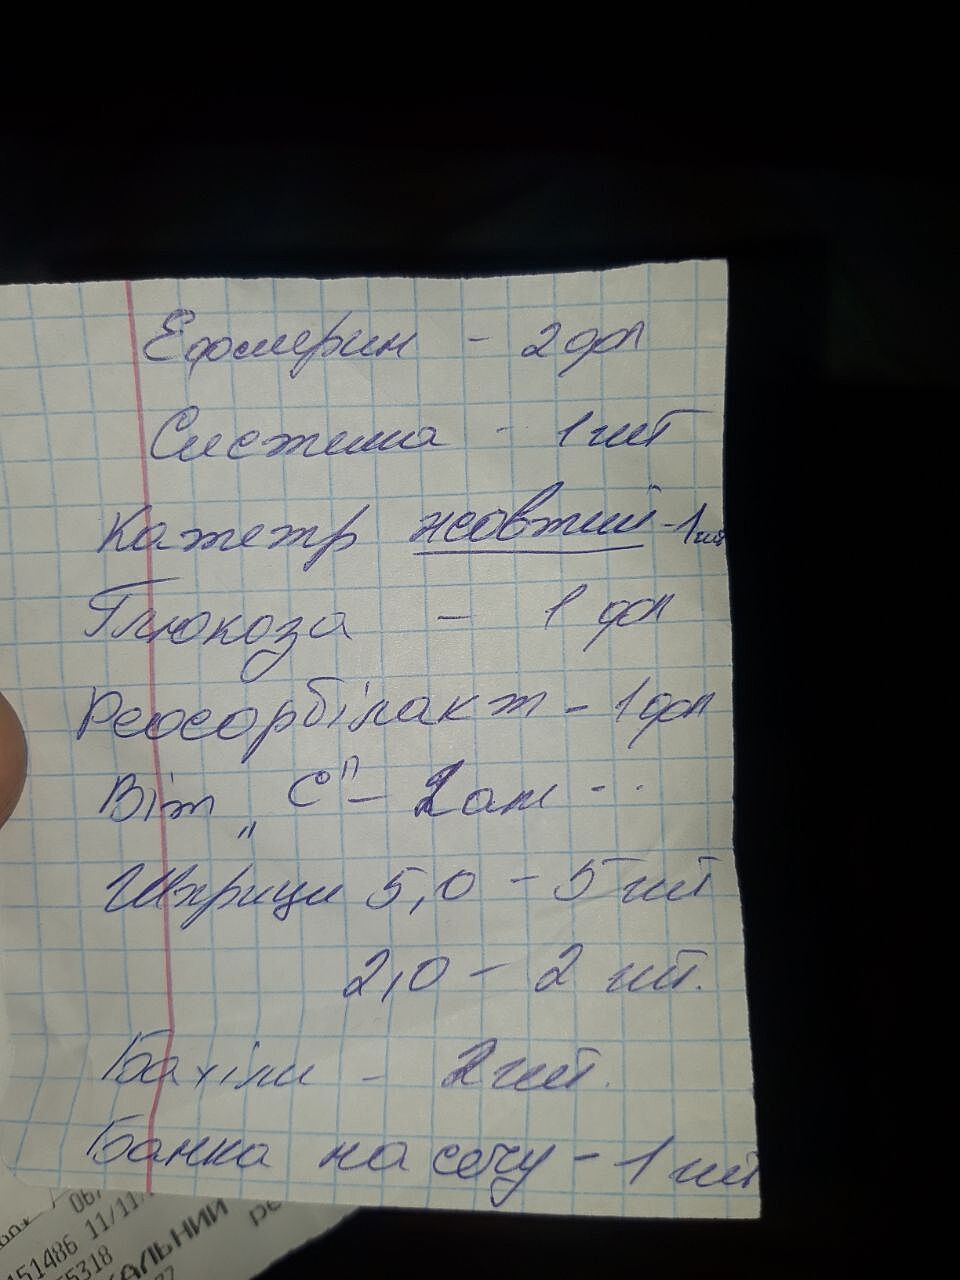 Ефмерин - 2 фл
Система - 1 шт
Катетр жовтий - 1 шт
Глюкоза - 1 фл
Реосорбілакт - 1 фл
Віт „С" - 2 ам - ..
Шприци 5,0 - 5 шт
2,0 - 2 шт.
Бахіли - 2 шт.
Банка на сечу - 1 шт
151486 11/11/
55318